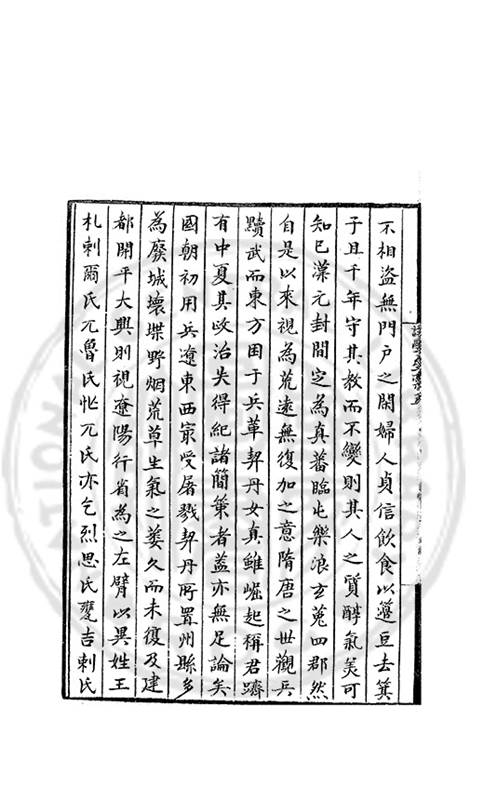 不相盜無門户之閑婦人貞信飲食以籩豆去箕
子且千年守其教而不變則其人之質醇氣美可
知已漢元封間定為真番臨屯樂浪玄菟四郡然
自是以來視為荒遠無復加之意隋唐之世觀兵
黷武而東方困于兵革契丹女真雖崛起稱君躋
有中夏其政治失得紀諸簡策者盖亦無足論矣
國朝初用兵遼東西㝡受屠戮契丹所置州縣多
為廢城壞堞野烟荒草生氣之萎久而未復及建
都開平大興則視遼陽行省為之左臂以異姓王
札剌爾氏兀魯氏忙兀氏亦乞烈思氏甕吉剌氏